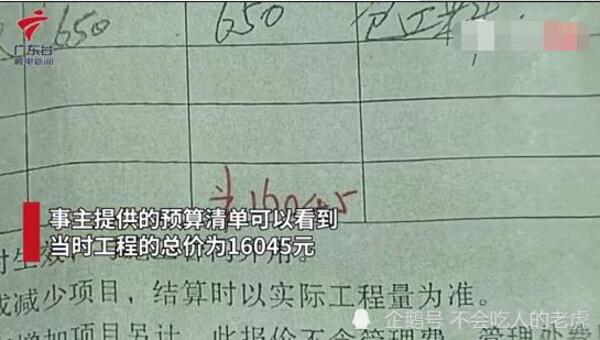 广东台
650
650
包工
16045
事主提供的预算清单可以看到
当时工程的总价为16045元
减少项目，结算时以实际工程量为准。
增加项目另计，此报价不含管理费，管理处
企鹅号 不会吃人的老虎